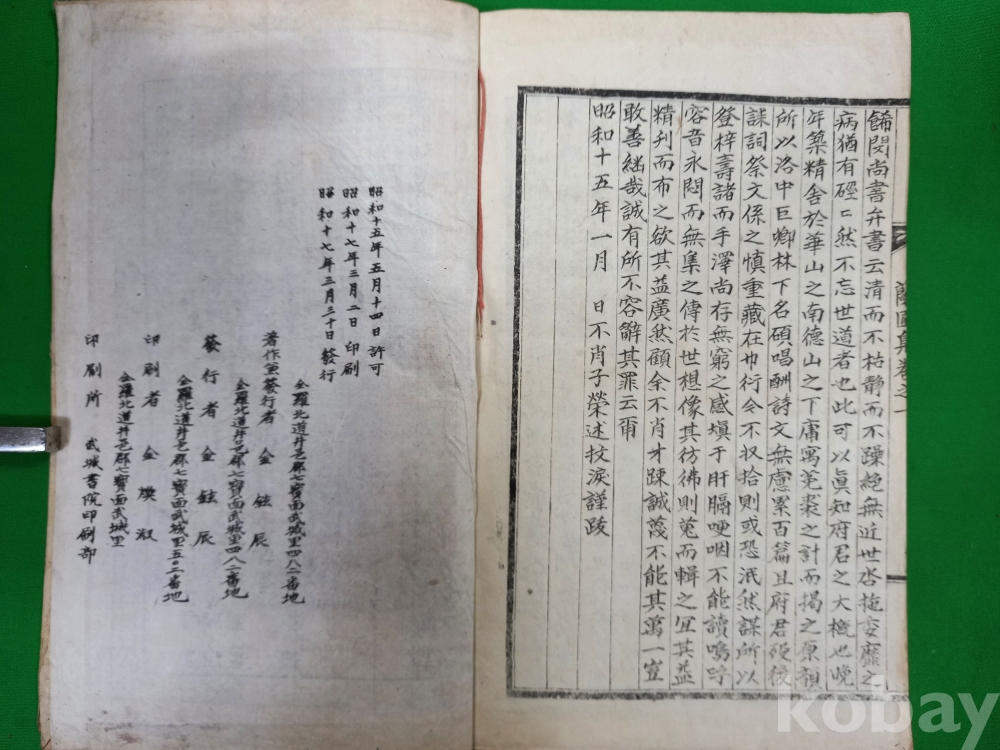 餙閔尚書弁書云清而不枯静而不躁絶無近世呰拖委靡之
病猶有硜〻然不忘世道者也此可以眞知府君之大槪也晩
年築精舍於華山之南德山之下庸寓菟裘之計而揭之原額
所以洛中巨卿林下名碩唱酬詩文無慮累百篇且府君歿後
誄詞祭文係之愼重藏在巾衍今不収拾則或恐泯然謀所以
登梓壽諸而手澤尚存無窮之感塡于肝膈哽咽不能讀嗚呼
容音永閟而無集之傳於世想像其彷彿則蒐而輯之宜其益
精刋而布之欲其益廣然顧余不肖才踈誠薄不能其萬一豈
敢善継哉誠有所不容辭其罪云爾
昭和十五年一月　日不肖子榮述抆淚謹跋
集卷之一
昭和十五年五月十四日許可
昭和十七年三月二日印刷
昭和十七年三月三十日發行
仝羅北道井邑郡七寶面武城里四八二番地
著作兼發行者 金鉉辰
仝羅北道井邑郡七寶面武城里四八二番地
發行者 金鉉辰
仝羅北道井邑郡七寶面武城里五〇二番地
印刷者 金 淑
仝羅北道井邑郡七寶面武城里
印刷所 武城書院印刷部
kobay